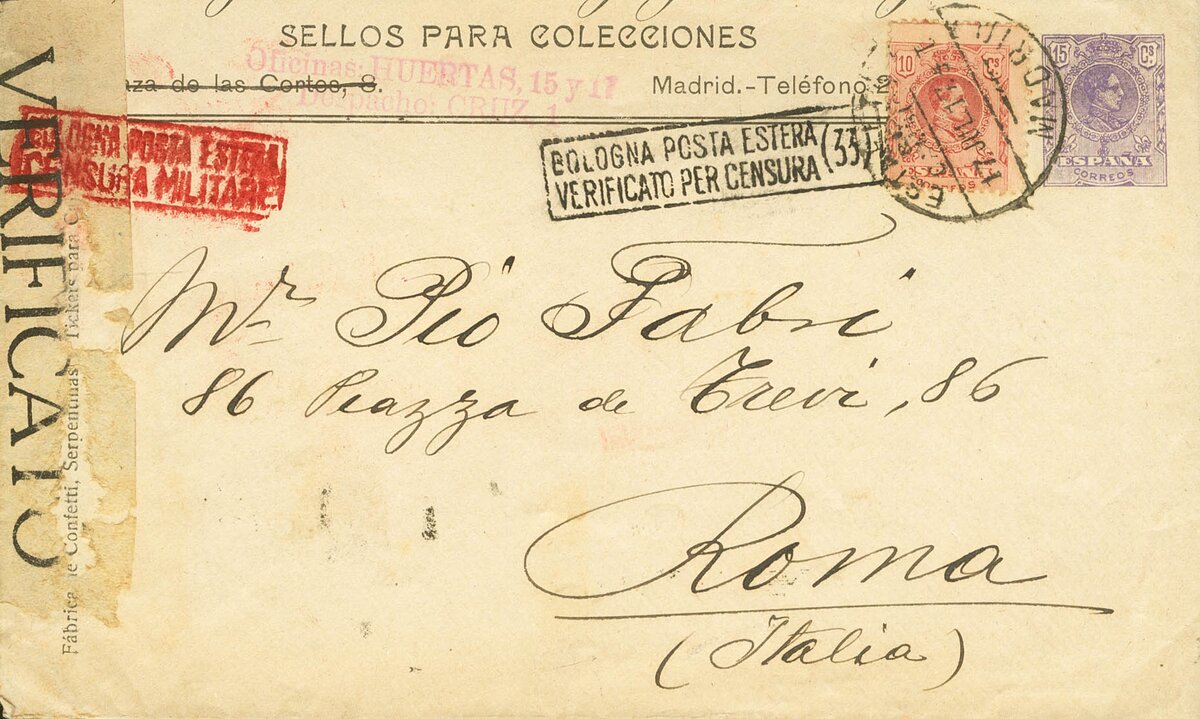 SELLOS PARA COLECCIONES
Oficinas: HUERTAS, 15 y 17
aza de las Cortes, 8. Madrid.-Teléfono 2
Despacho: CRUZ, 1
BOLOGNA POSTA ESTERA
CENSURA MILITARE
BOLOGNA POSTA ESTERA
VERIFICATO PER CENSURA (33)
MADRID
10 Cs
15 Cs
ESPAÑA
CORREOS
VERIFICATO
Fábrica de Confetti, Serpentinas Tickets para
Mr Pio Fabri
86 Piazza de Trevi, 86
Roma
(Italia)